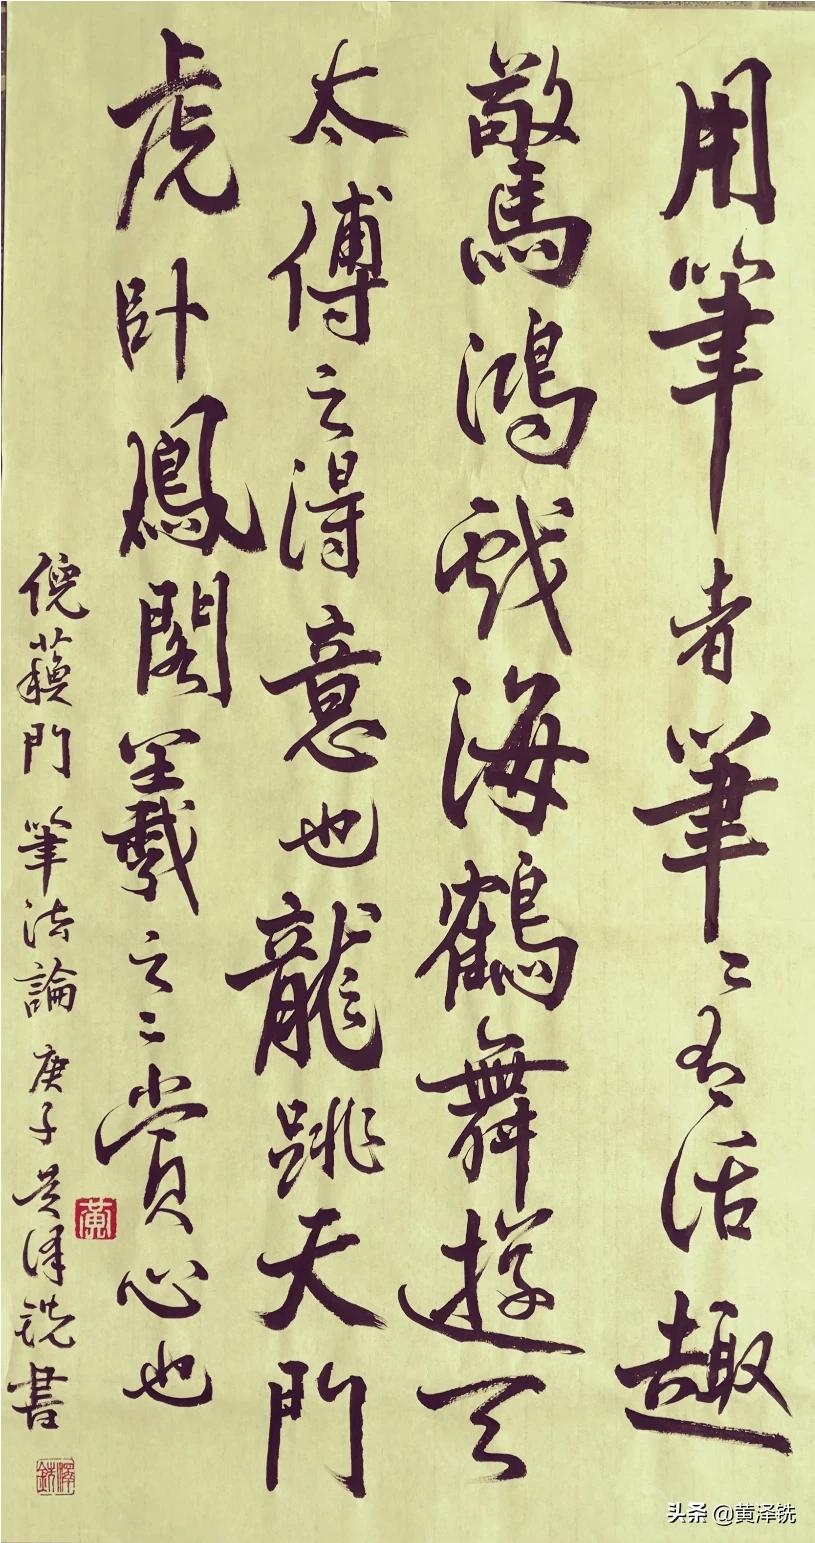 用筆者筆〻有活趣
驚鴻戲海鶴舞遊天
太傅之得意也龍跳天門
虎卧鳳閣羲之〻賞心也
倪蘓門筆法論庚子黃澤銑書
黃
澤銑
头条 @黄泽铣